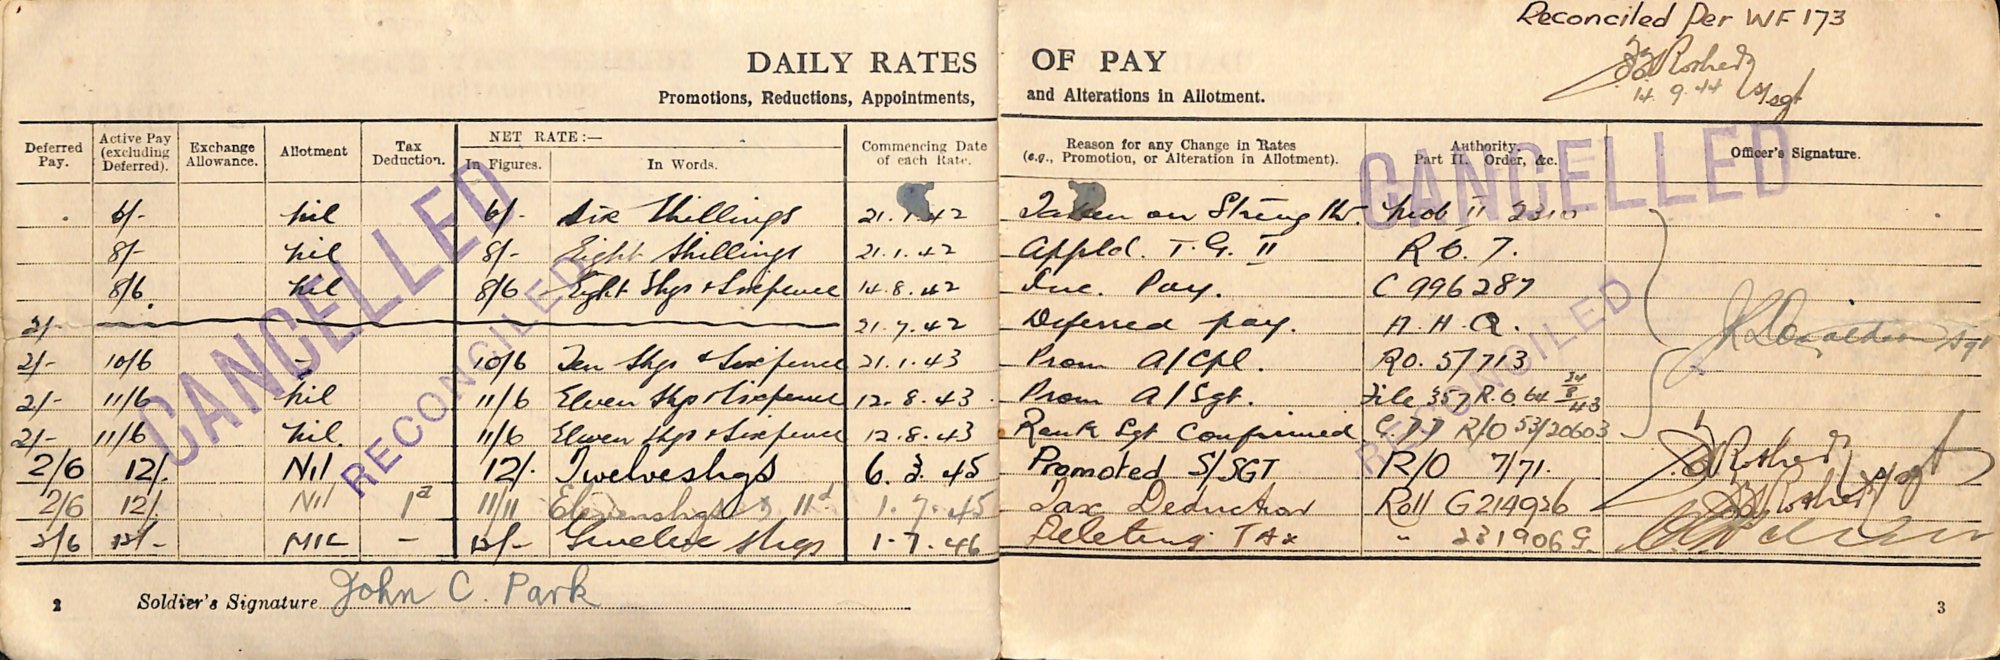 Reconciled Per WF 173
14. 9. 44 S/Sgt
DAILY RATES OF PAY
Promotions, Reductions, Appointments, and Alterations in Allotment.
Deferred Pay. Active Pay (excluding Deferred). Exchange Allowance. Allotment Tax Deduction. NET RATE:— In Figures. In Words. Commencing Date of each Rate. Reason for any Change in Rates (e.g., Promotion, or Alteration in Allotment). Authority. Part II. Order, &c. Officer's Signature.
6/- Nil 6/- Six Shillings 21. 1. 42 Taken on Strength. Mob II 2310
8/- Nil 8/- Eight Shillings 21. 1. 42 Appld. T. G. II R O. 7.
8/6 Nil 8/6 Eight Shgs & Sixpence 14. 8. 42 Inc. Pay. C 996287
2/- 21. 7. 42 Deferred pay. A. H. Q.
2/- 10/6 - 10/6 Ten Shgs & Sixpence 21. 1. 43 Prom A/Cpl. RO. 5/713
2/- 11/6 Nil 11/6 Eleven Shgs & Sixpence 12. 8. 43 Prom A/Sgt. File 357 R. O 64 24/8/43
2/- 11/6 Nil. 11/6 Eleven Shgs & Sixpence 12. 8. 43 Rank Sgt Confirmed R/O 53/20603
2/6 12/. Nil 12/. Twelve shgs 6. 3. 45 Promoted S/SGT R/O 7/71.
2/6 12/. Nil 1d 11/11 Eleven shgs & 11d 1. 7. 45 Tax Deduction Roll G214926
2/6 12/- NIL - 12/- Twelve Shgs 1. 7. 46 Deleting TAX " 231906 G.
CANCELLED
RECONCILED
CANCELLED
RECONCILED
2 Soldier's Signature John C. Park 3